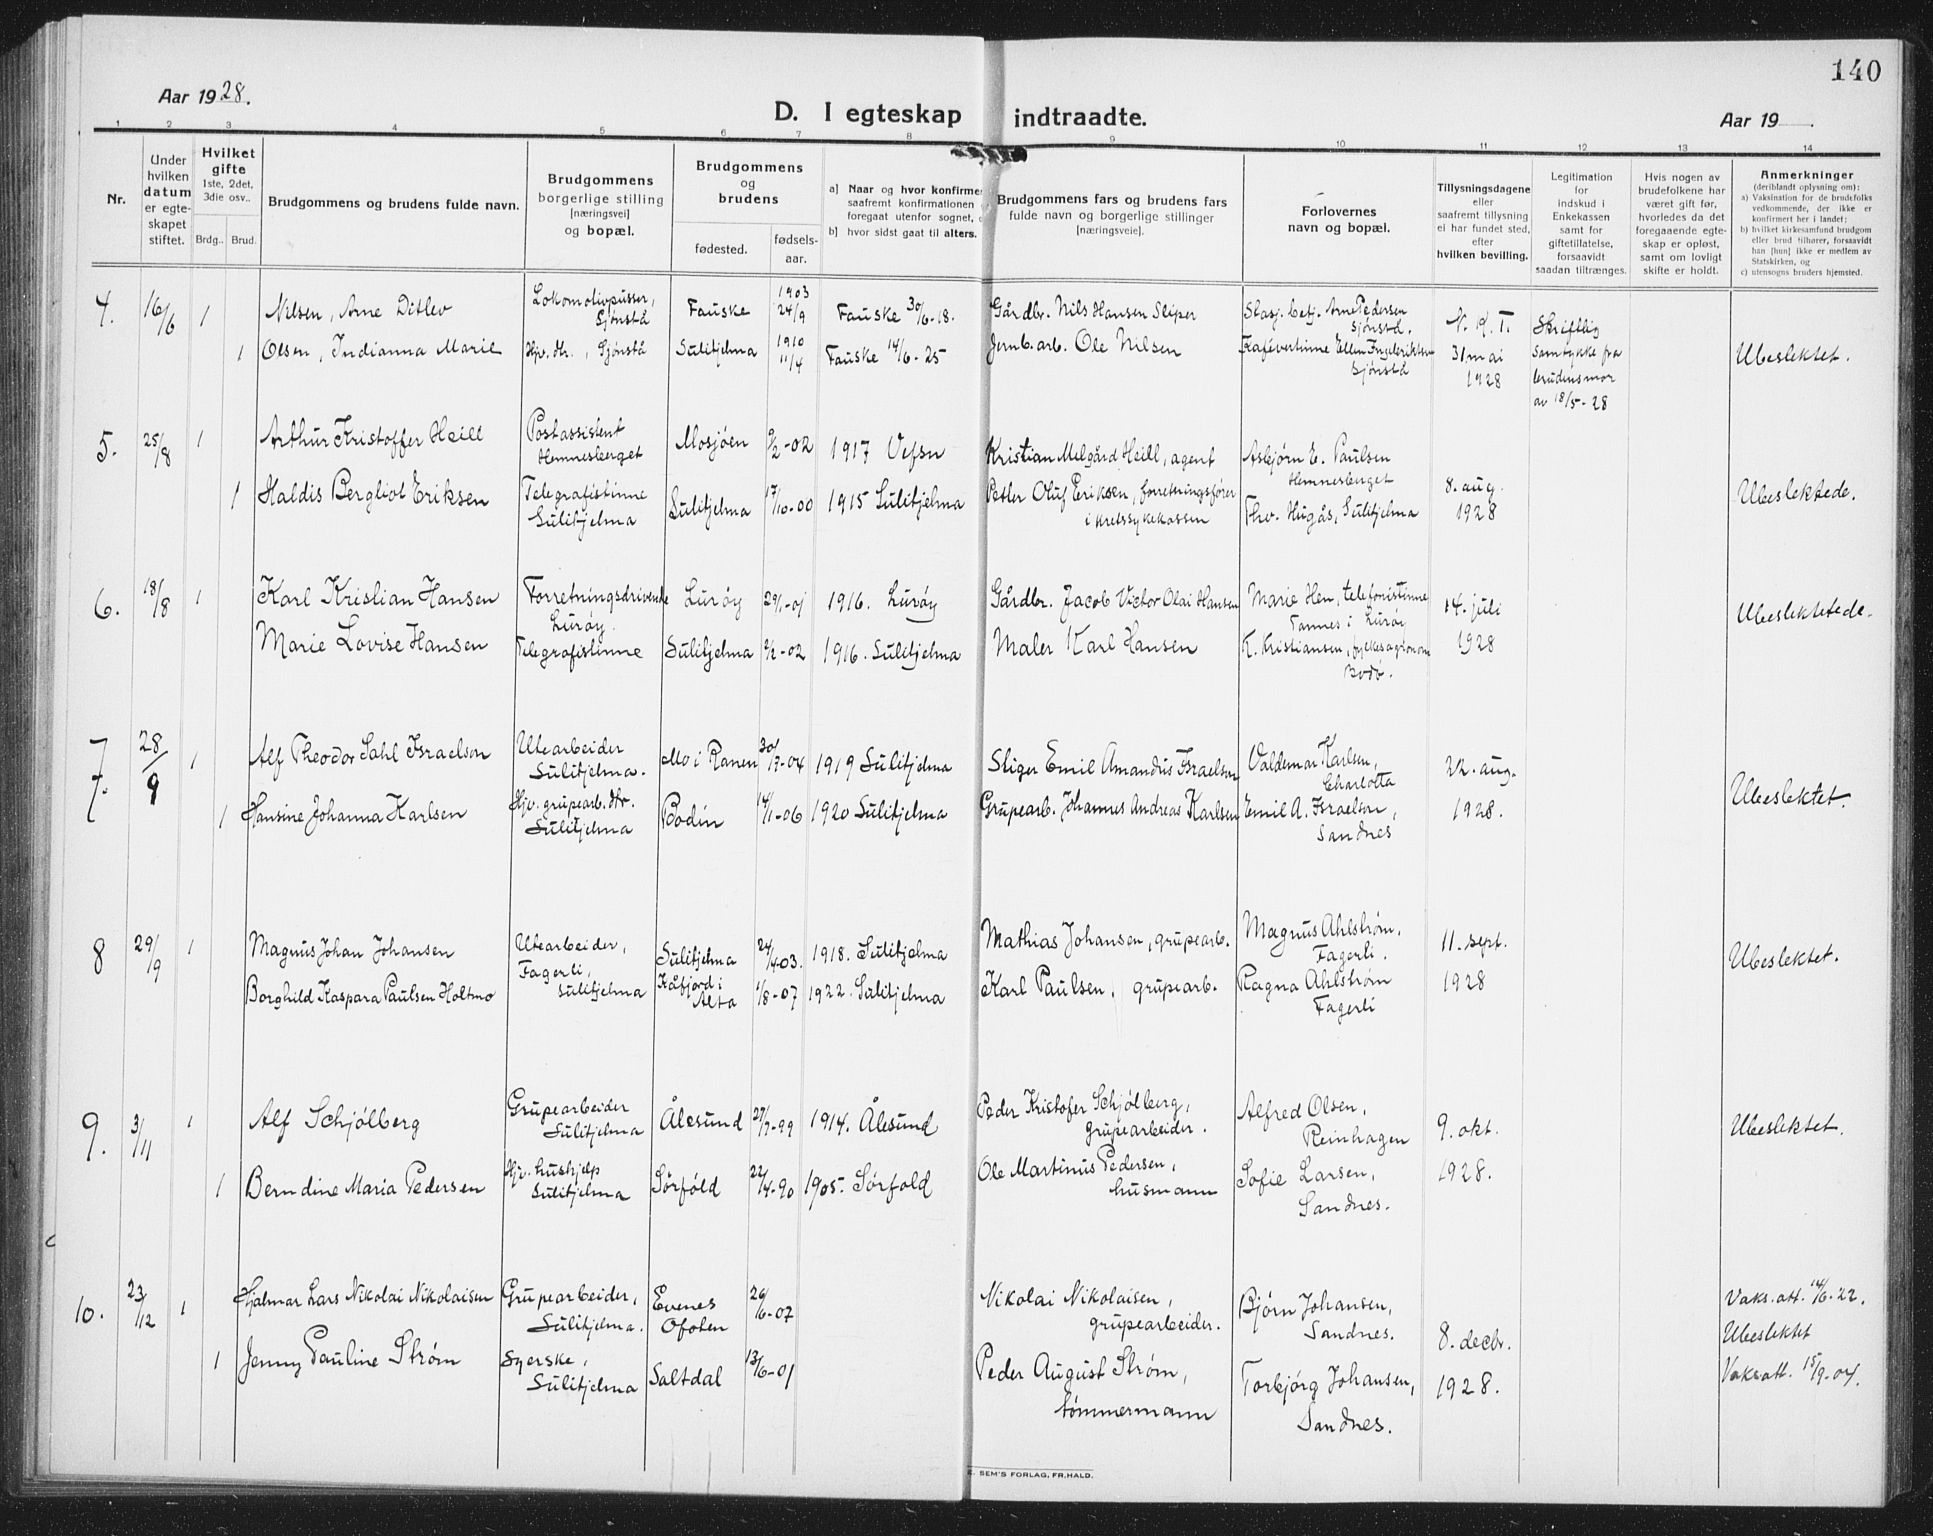 140
Aar 1928.
D. I egteskap indtraadte.
Aar 19
1 2 3 4 5 6 7 8 9 10 11 12 13 14
Nr.
Under hvilken datum er egteskapet stiftet.
Hvilket gifte 1ste, 2det, 3die osv..
Brdg.. Brud.
Brudgommens og brudens fulde navn.
Brudgommens borgerlige stilling [næringsvei] og bopæl.
Brudgommens og brudens
fødested.
fødselsaar.
a] Naar og hvor konfirme
saafremt konfirmationen
foregaat utenfor sognet,
b] hvor sidst gaat til alters.
Brudgommens fars og brudens fars fulde navn og borgerlige stillinger [næringsveie].
Forlovernes navn og bopæl.
Tillysningsdagene eller saafremt tillysning ei har fundet sted, efter hvilken bevilling.
Legitimation for indskud i Enkekassen samt for giftetillatelse, forsaavidt saadan tiltrænges.
Hvis nogen av brudefolkene har været gift før, hvorledes da det foregaaende egteskap er opløst, samt om lovligt skifte er holdt.
Anmerkninger
(deriblandt oplysning om):
a) Vaksination for de brudefolks vedkommende, der ikke er konfirmert her i landet;
b) hvilket kirkesamfund brudgom eller brud tilhører, forsaavidt han [hun] ikke er medlem av Statskirken, og
c) utensogns bruders hjemsted.
4. 16/6 1 Nilsen, Arne Ditlev Lokomotivpusser, Sjønstå Fauske 1903 24/9 Fauske 30/6-18. Gårdbr. Nils Hansen Sliper Stasj. betj. Arne Pedersen Sjønstå. N.R.T.
1 Olsen, Indianna Marie Hjv. dtr., Sjønstå Sulitjelma 1910 11/4 Fauske 14/6-25 Jernb. arb. Ole Nilsen Kafévertinne Ellen Sjønstå 31 mai 1928 Skriftlig samtykke fra brudens mor av 18/5-28 Ubeslektet.
5. 25/8 1 Arthur Kristoffer Heill Postassistent Hemnesberget Mosjøen 9/2-02 1917 Vefsn Kristian Melgård Heill, agent Asbjørn E. Paulsen Hemnesberget
1 Haldis Bergliot Eriksen Telegrafistinne Sulitjelma Sulitjelma 17/10-00 1915 Sulitjelma Petter Oluf Eriksen, forretningsfører i Kretssykekassen Thv. Hugås, Sulitjelma 8. aug. 1928 Ubeslektede.
6. 18/8 1 Karl Kristian Hansen Forretningsdrivende Lurøy. Lurøy 29/1-01 1916. Lurøy Gårdbr. Jacob Victor Olai Hansen Marie Hen, telefonistinne Tonnes i Lurøi 14. juli
Marie Lovise Hansen Telegrafistinne Sulitjelma 2/2-02 1916. Sulitjelma Maler Karl Hansen K. Kristiansen, fylkesagronom Bodø. 1928 Ubeslektetede.
7. 7. 28/9 1 Alf Theodor Dahl Israelson Utearbeider Sulitjelma. Mo i Ranen 30/7-04 1919 Sulitjelma Stiger Emil Amandus Israelson Valdemar Karlsen, Charlotta 22. aug.
1 Hansine Johanna Karlsen Hjv. grupearb. dtr. Sulitjelma Bodin 14/1-06 1920 Sulitjelma Grupearb. Johannes Andreas Karlsen Emil A. Israelson, Sandnes 1928. Ubeslektet.
8 29/9 1 Magnus Johan Johansen Utearbeider, Fagerli, Sulitjelma Sulitjelma 24/4-03. 1918. Sulitjelma Mathias Johansen, grupearb. Magnus Ahlstrøm, Fagerli. 11. sept.
Borghild Kaspara Paulsen Holtmo Kåfjord i Alta 1/8-07 1922. Sulitjelma Karl Paulsen, grupearb. Ragna Ahlstrøm Fagerli 1928 Ubeslektet.
9. 3/11 1 Alf Schjølberg Grupearbeider Sulitjelma Ålesund 27/7-99 1914. Ålesund Peder Kristofer Schjølberg, grupearbeider. Alfred Olsen, Reinhagen 9. okt.
1 Berndine Maria Pedersen Hjv. hushjelp Sulitjelma Sørfold 22/4-90 1905. Sørfold Ole Martinus Pedersen, husmann Sofie Larsen, Sandnes. 1928. Ubeslektet.
10. 23/12 1 Hjalmar Lars Nikolai Nikolaisen Grupearbeider, Sulitjelma. Evenes Ofoten 26/6-07 Nikolai Nikolaisen, grupearbeider. Bjørn Johansen, Sandnes. 8. decbr. Vaks. att. 14/6-22. Ubeslektet
1 Jenny Pauline Strøm Syerske, Sulitjelma Saltdal 13/6-01 Peder August Strøm, tømmermann Torbjørg Johansen, Sandnes. 1928. Vaks att. 15/9-04.
SEM'S FORLAG, FR.HALD.